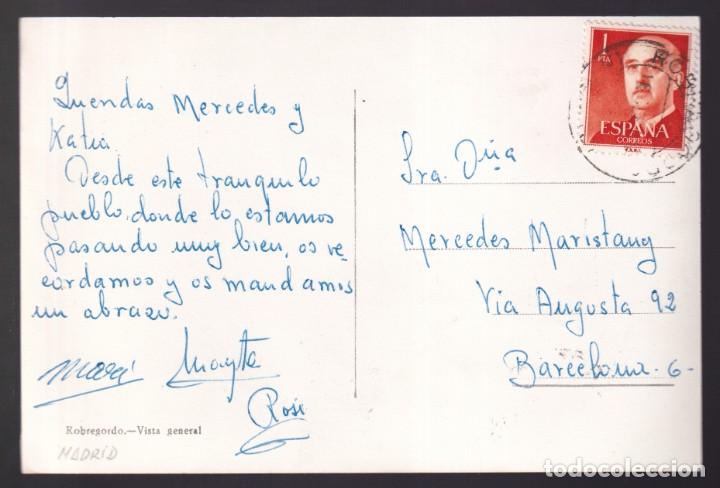 Querídas Mercedes y
Katia.
Desde este tranquilo
pueblo, donde lo estamos
pasando muy bien, os re-
cordamos y os mandamos
un abrazo.
Mayte
Rosi
Robregordo.—Vista general
MADRID
1
PTA
ESPAÑA
CORREOS
Sra. Dña
Mercedes Maristany
Via Augusta 92
Barcelona-6-
todocoleccion.net